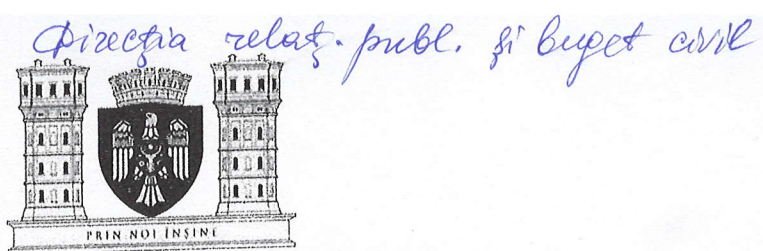 Direcția relaț. publ. și buget civil
PRIN NOI ÎNȘINE